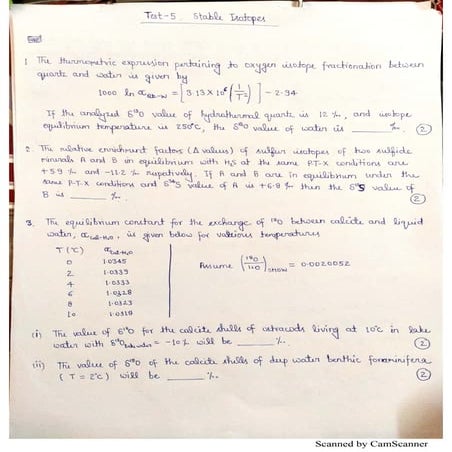 Test-5 Stable Isotopes
1. The thermometric expression pertaining to oxygen isotope fractionation between
quartz and water is given by
1000 ln α Qtz-W = [3.13 × 10⁶ (1/T²)] - 2.94
If the analyzed δ¹⁸O value of hydrothermal quartz is 12 ‰, and isotope
equilibrium temperature is 250°C, the δ¹⁸O value of water is ______ ‰. (2)
2. The relative enrichment factors (Δ values) of sulfur isotopes of two sulfide
minerals A and B in equilibrium with H₂S at the same P-T-X conditions are
+5.9 ‰ and -11.2 ‰ respectively. If A and B are in equilibrium under the
same P-T-X conditions and δ³⁴S value of A is +6.8 ‰ then the δ³⁴S value of
B is ______ ‰. (2)
3. The equilibrium constant for the exchange of ¹⁸O between calcite and liquid
water, α cal-H₂O, is given below for various temperatures
T (°C) α cal-H₂O
0 1.0345
2 1.0339
4 1.0333
6 1.0328
8 1.0323
10 1.0318
Assume (¹⁸O/¹⁶O) SMOW = 0.0020052
(i) The value of δ¹⁸O for the calcite shells of ostracods living at 10°C in lake
water with δ¹⁸O = -10 ‰ will be ______ ‰. (2)
(ii) The value of δ¹⁸O of the calcite shells of deep water benthic foraminifera
(T = 2°C) will be ______ ‰. (2)
Scanned by CamScanner